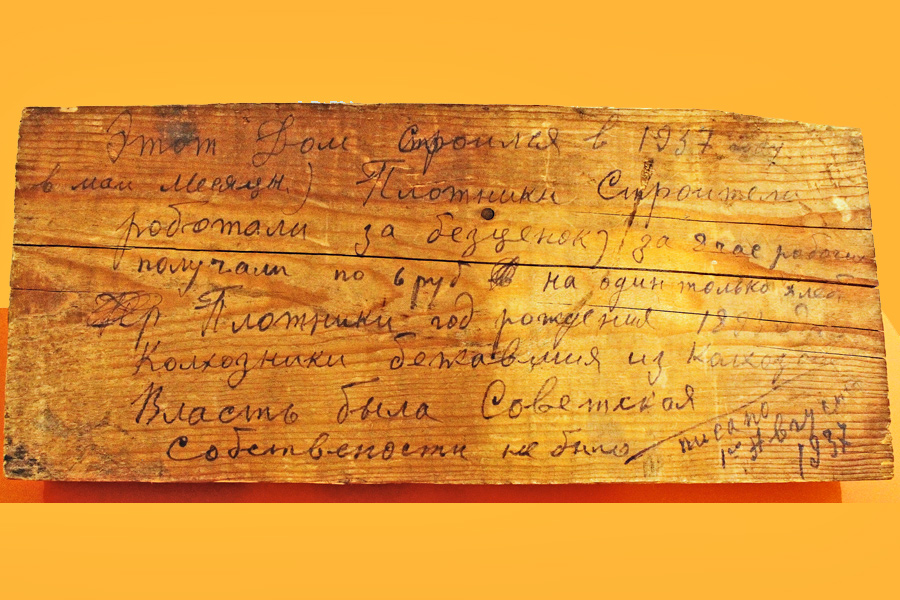 Этот Дом строился в 1937 году
в маи месяцы) Плотники Строители
роботали за безценок) за 8 час робочих
получали по 6 руб на один только хлеб
Плотники год рождения
Колхозники бежавшия из Колхозов
Власть была Советская
Собствености не было
писано
1го Августа
1937